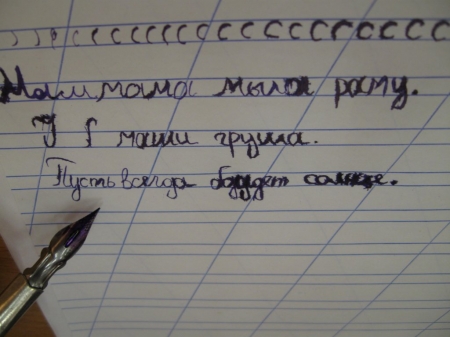 ссссссссссссссссссс
Мам мама мыла раму.
У маши груша.
Пусть всегда будет солнце.